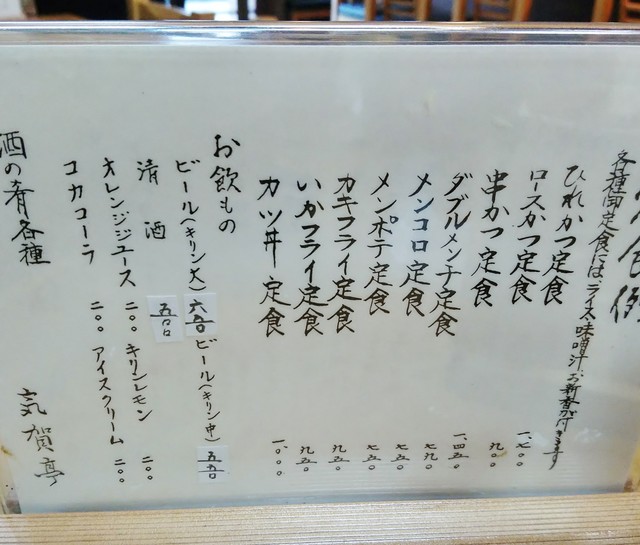 食例
各種御定食には、ライス、味噌汁、お新香が付きます
ひれかつ定食
ロースかつ定食 一、七〇〇
串かつ定食 九〇〇
ダブルメンチ定食 一、四五〇
メンコロ定食 七九〇
メンポテ定食 七五〇
カキフライ定食 九五〇
いかフライ定食 九五〇
カツ丼定食 一、〇〇〇
お飲もの
ビール(キリン大) 六五〇 ビール(キリン中) 五五〇
清酒 五〇〇
オレンジジュース 二〇〇 キリンレモン 二〇〇
コカコーラ 二〇〇 アイスクリーム 二〇〇
酒の肴各種
気賀亭